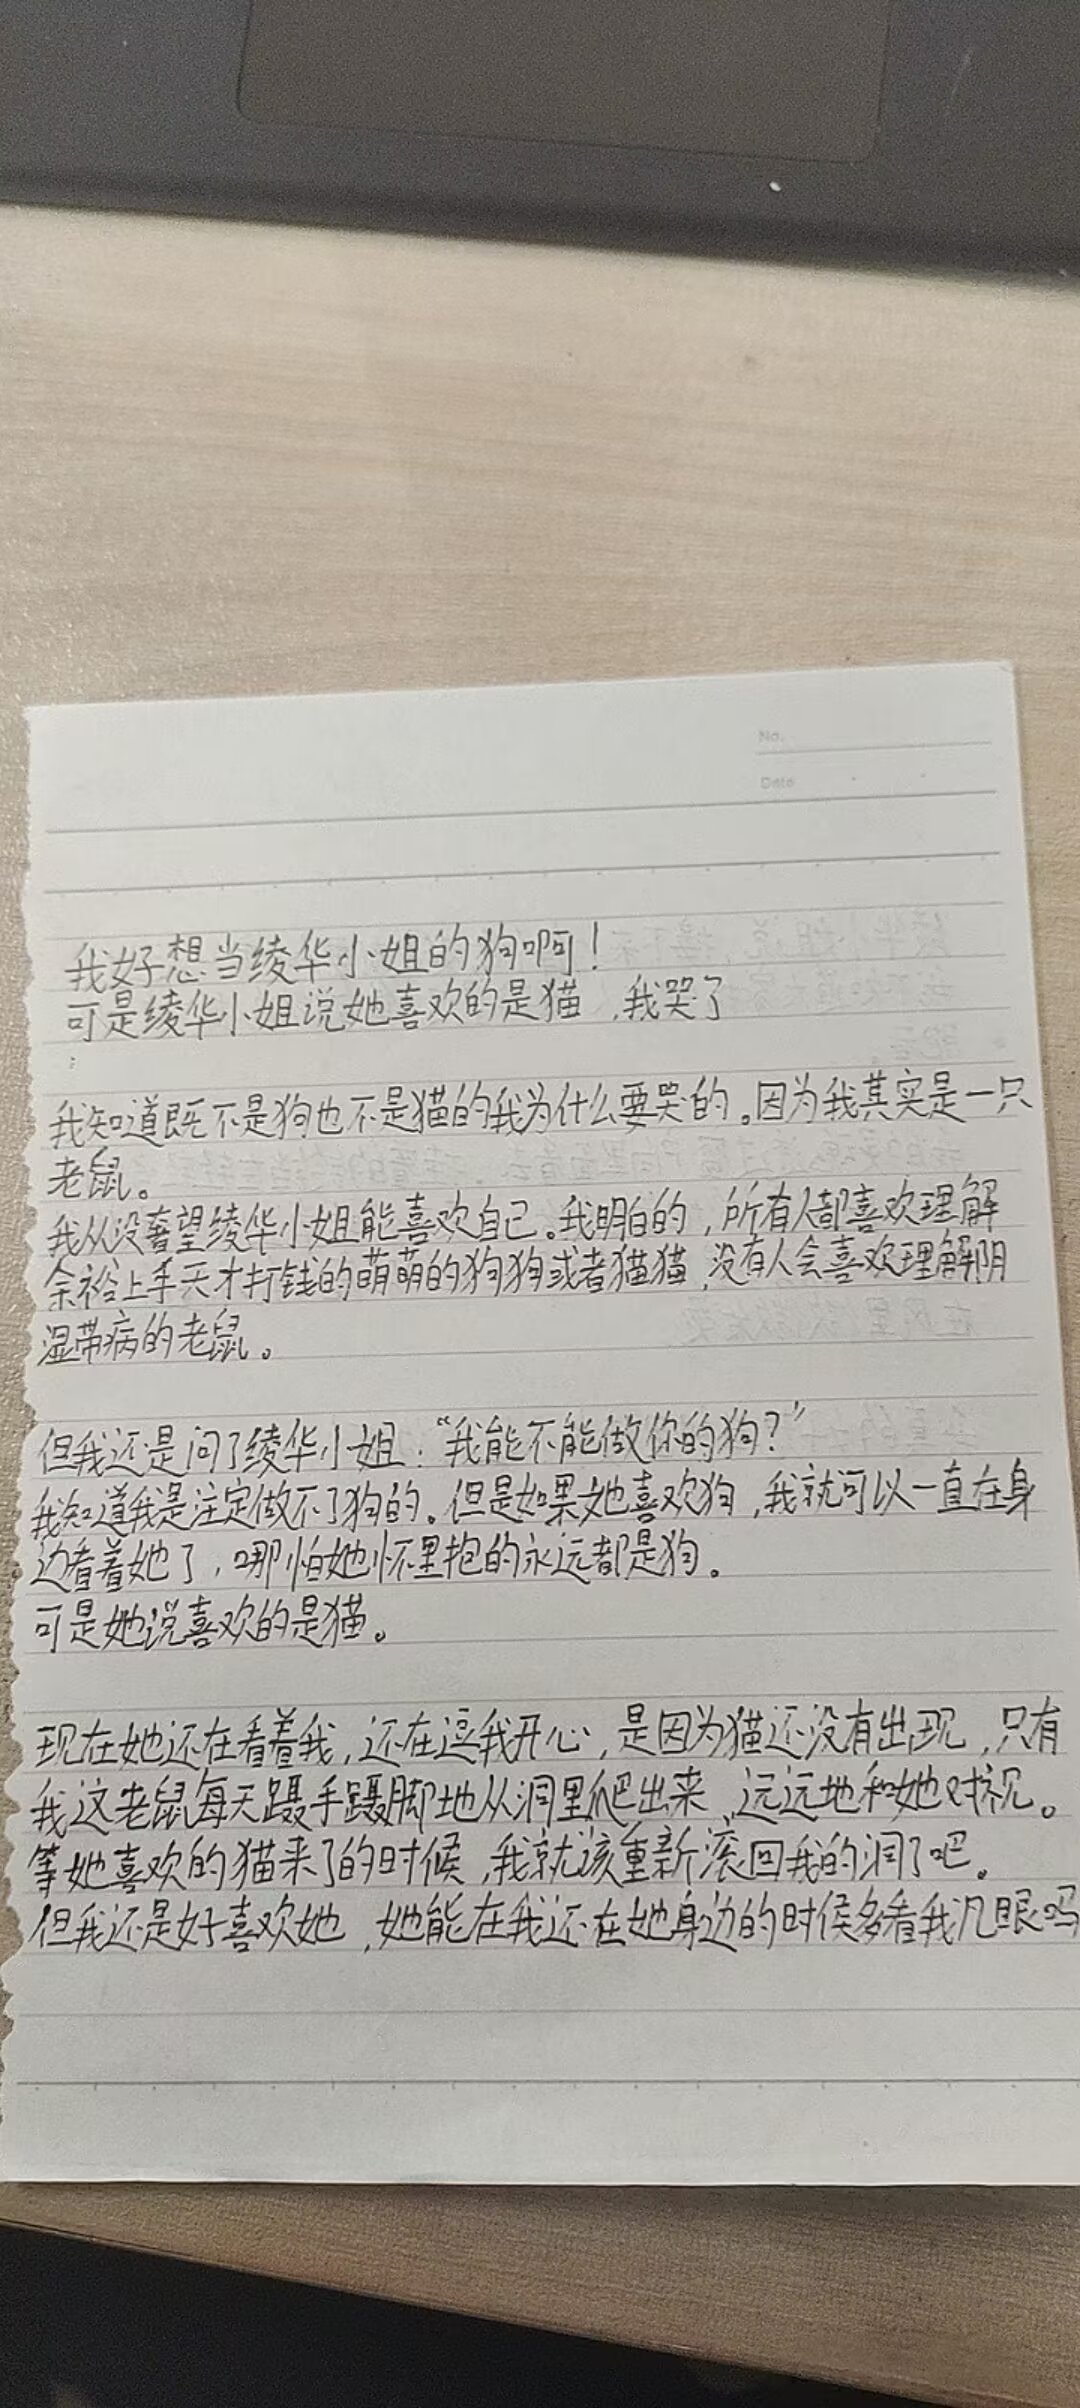 No.
Date
我好想当绫华小姐的狗啊！
可是绫华小姐说她喜欢的是猫，我哭了
我知道既不是狗也不是猫的我为什么要哭的。因为我其实是一只
老鼠。
我从没奢望绫华小姐能喜欢自己。我明白的，所有人都喜欢理解
余裕上手天才打钱的萌萌的狗狗或者猫猫，没有人会喜欢理解阴
湿带病的老鼠。
但我还是问了绫华小姐：“我能不能做你的狗？”
我知道我是注定做不了狗的。但是如果她喜欢狗，我就可以一直在身
边看着她了，哪怕她怀里抱的永远都是狗。
可是她说喜欢的是猫。
现在她还在看着我，还在逗我开心，是因为猫还没有出现，只有
我这老鼠每天蹑手蹑脚地从洞里爬出来，远远地和她对视。
等她喜欢的猫来了的时候，我就该重新滚回我的洞了吧。
但我还是好喜欢她，她能在我还在她身边的时候多看我几眼吗